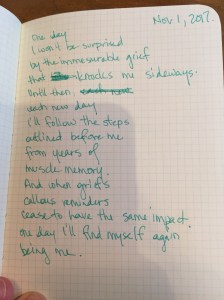 Nov 1, 2012.
One day
I won't be surprised
by the immeasurable grief
that knocks me sideways.
Until then,
each new day
I'll follow the steps
outlined before me
from years of
muscle memory.
And when grief's
callous reminders
cease to have the same impact
one day I'll find myself again
being me.